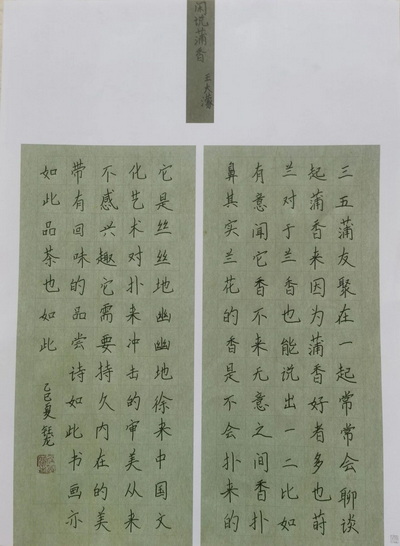 闲说蒲香
王大濛
三五蒲友聚在一起常常会聊谈
起蒲香来因为蒲香好者多也莳
兰对于兰香也能说出一二比如
有意闻它香不来无意之间香扑
鼻其实兰花的香是不会扑来的
它是丝丝地幽幽地徐来中国文
化艺术对扑来冲击的审美从来
不感兴趣它需要持久内在的美
带有回味的品尝诗如此书画亦
如此品茶也如此
乙巳夏